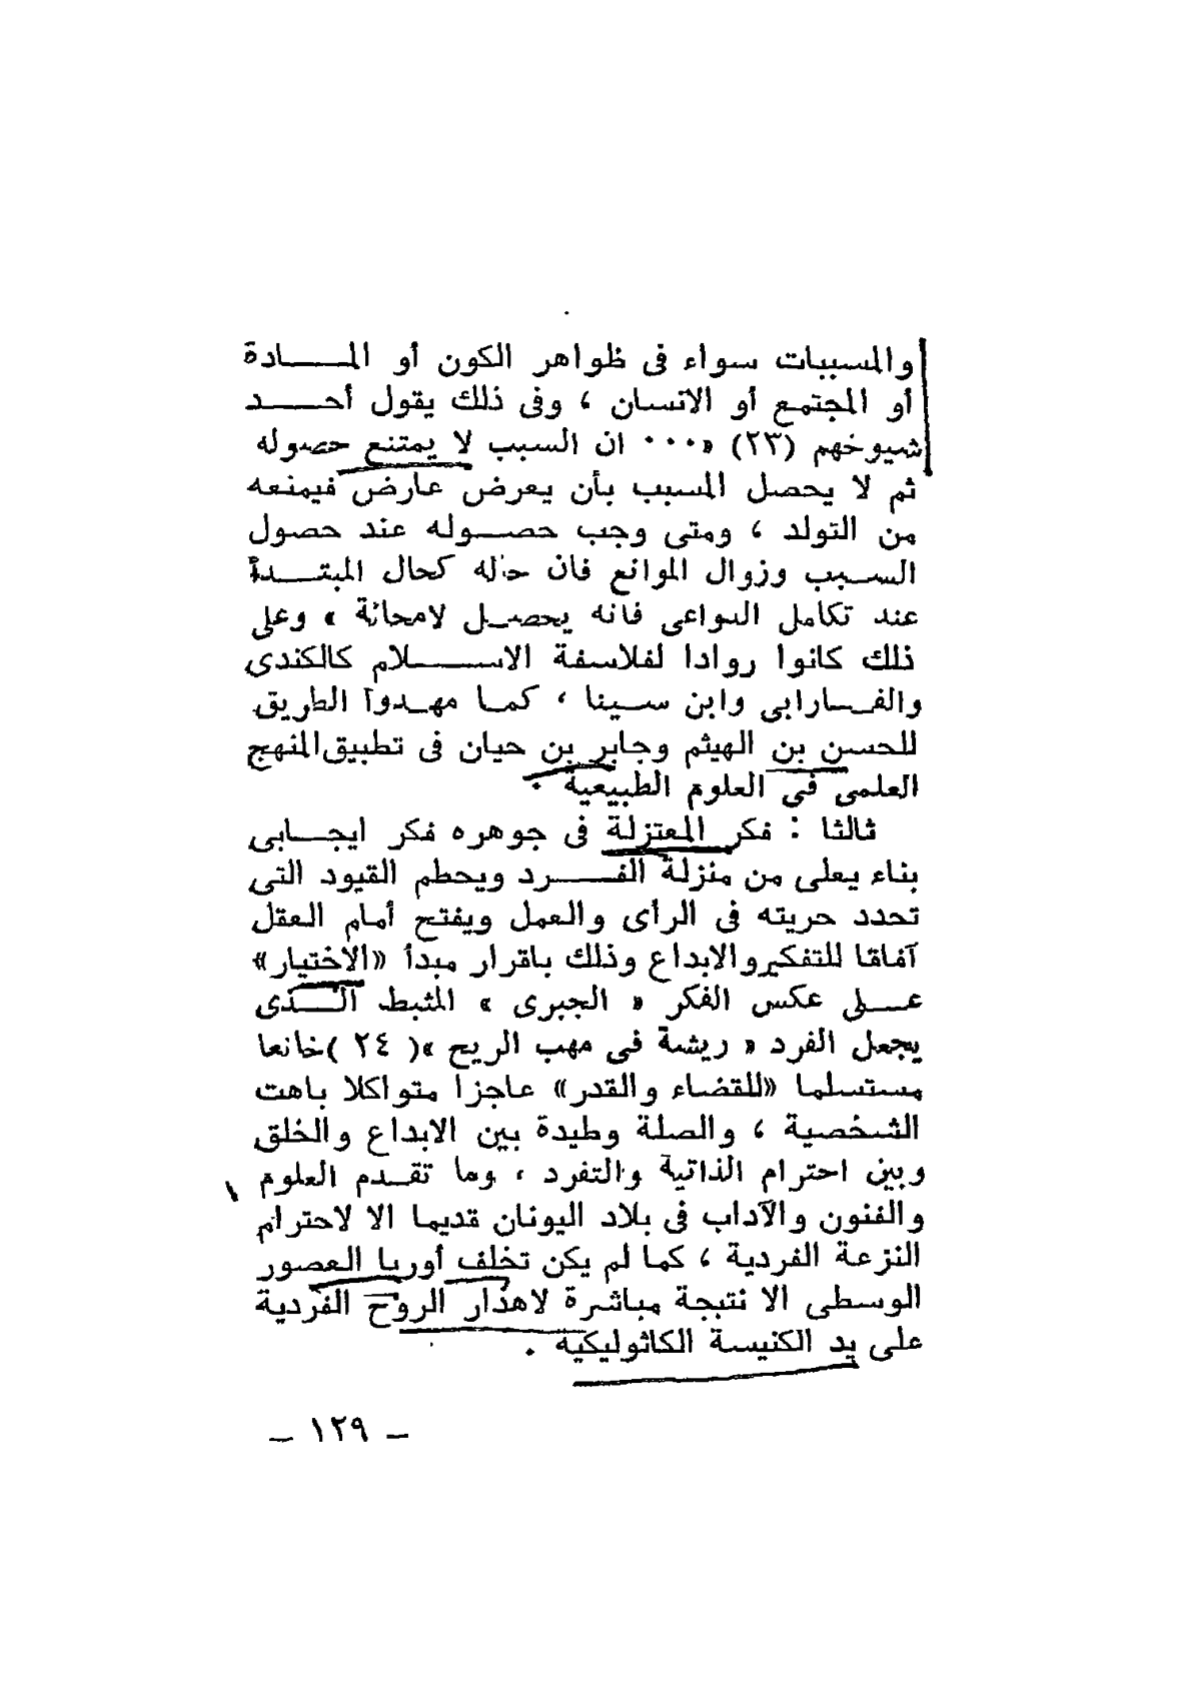 والمسببات سواء فى ظواهر الكون أو المادة
أو المجتمع أو الانسان ، وفى ذلك يقول أحد
شيوخهم (٢٣) «٠٠٠ ان السبب لا يمتنع حصوله
ثم لا يحصل المسبب بأن يعرض عارض فيمنعه
من التولد ، ومتى وجب حصوله عند حصول
السبب وزوال الموانع فان حاله كحال المبتدأ
عند تكامل الدواعى فانه يحصل لامحالة » وعلى
ذلك كانوا روادا لفلاسفة الاسلام كالكندى
والفارابى وابن سينا ، كما مهدوا الطريق
للحسن بن الهيثم وجابر بن حيان فى تطبيق المنهج
العلمى فى العلوم الطبيعية .
ثالثا : فكر المعتزلة فى جوهره فكر ايجابى
بناء يعلى من منزلة الفرد ويحطم القيود التى
تحدد حريته فى الرأى والعمل ويفتح أمام العقل
آفاقا للتفكير والابداع وذلك باقرار مبدأ «الاختيار»
على عكس الفكر « الجبرى » المثبط الذى
يجعل الفرد « ريشة فى مهب الريح »( ٢٤ )خانعا
مستسلما «للقضاء والقدر» عاجزا متواكلا باهت
الشخصية ، والصلة وطيدة بين الابداع والخلق
وبين احترام الذاتية والتفرد ، وما تقدم العلوم
والفنون والآداب فى بلاد اليونان قديما الا لاحترام
النزعة الفردية ، كما لم يكن تخلف أوربا العصور
الوسطى الا نتيجة مباشرة لاهدار الروح الفردية
على يد الكنيسة الكاثوليكية .
– ١٢٩ –